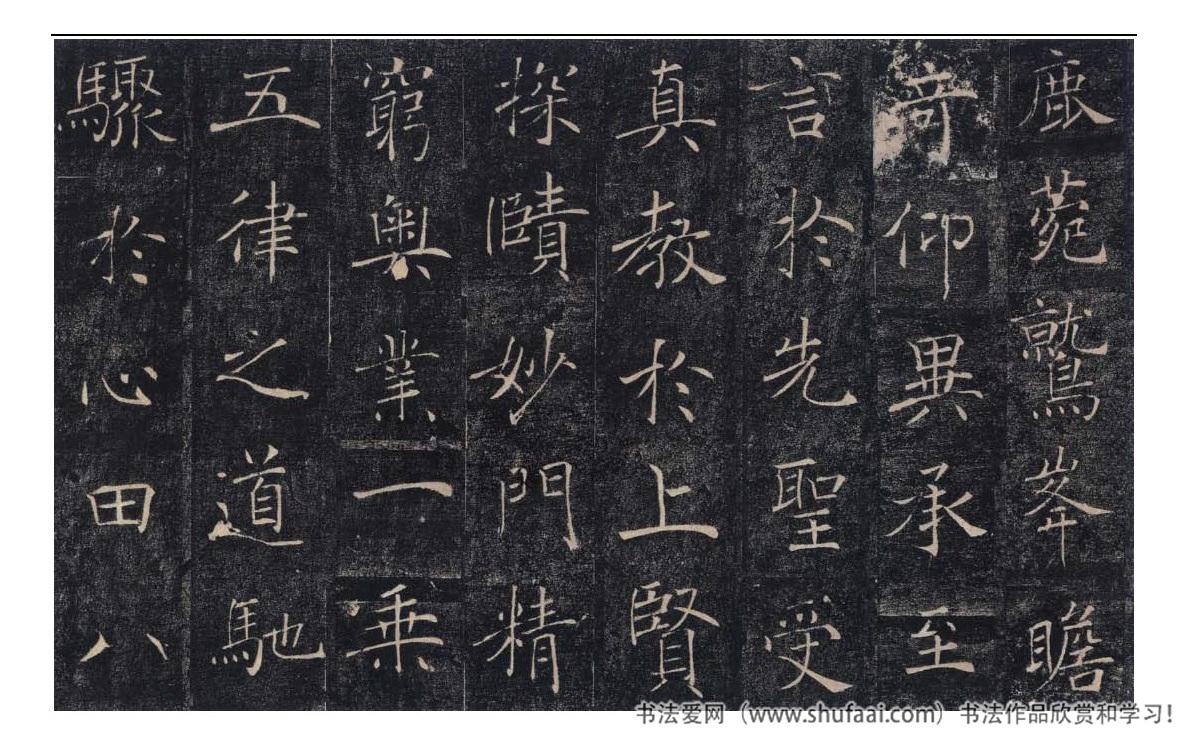 鹿菀鷲峯瞻
奇仰異承至
言於先聖受
真教於上賢
探賾妙門精
窮奧業一乗
五律之道馳
驟於心田八
书法爱网（www.shufaai.com）书法作品欣赏和学习！